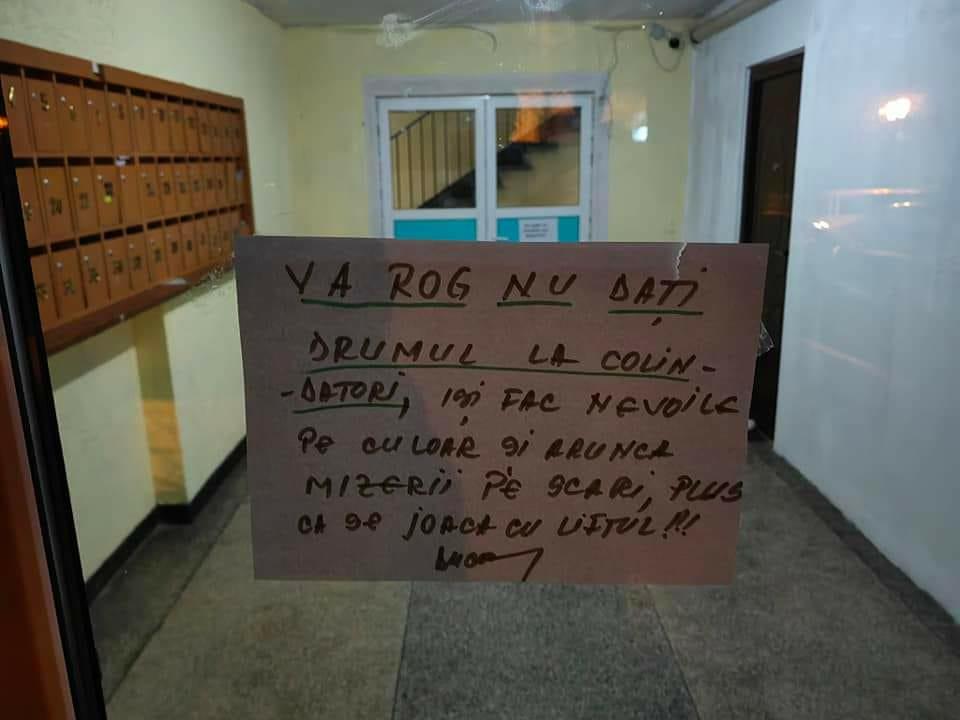 VA ROG NU DAȚI
DRUMUL LA COLIN-
-DATORI, IȘI FAC NEVOILE
PE CULOAR ȘI ARUNCA
MIZERII PE SCARI, PLUS
CA SE JOACA CU LIFTUL!!!